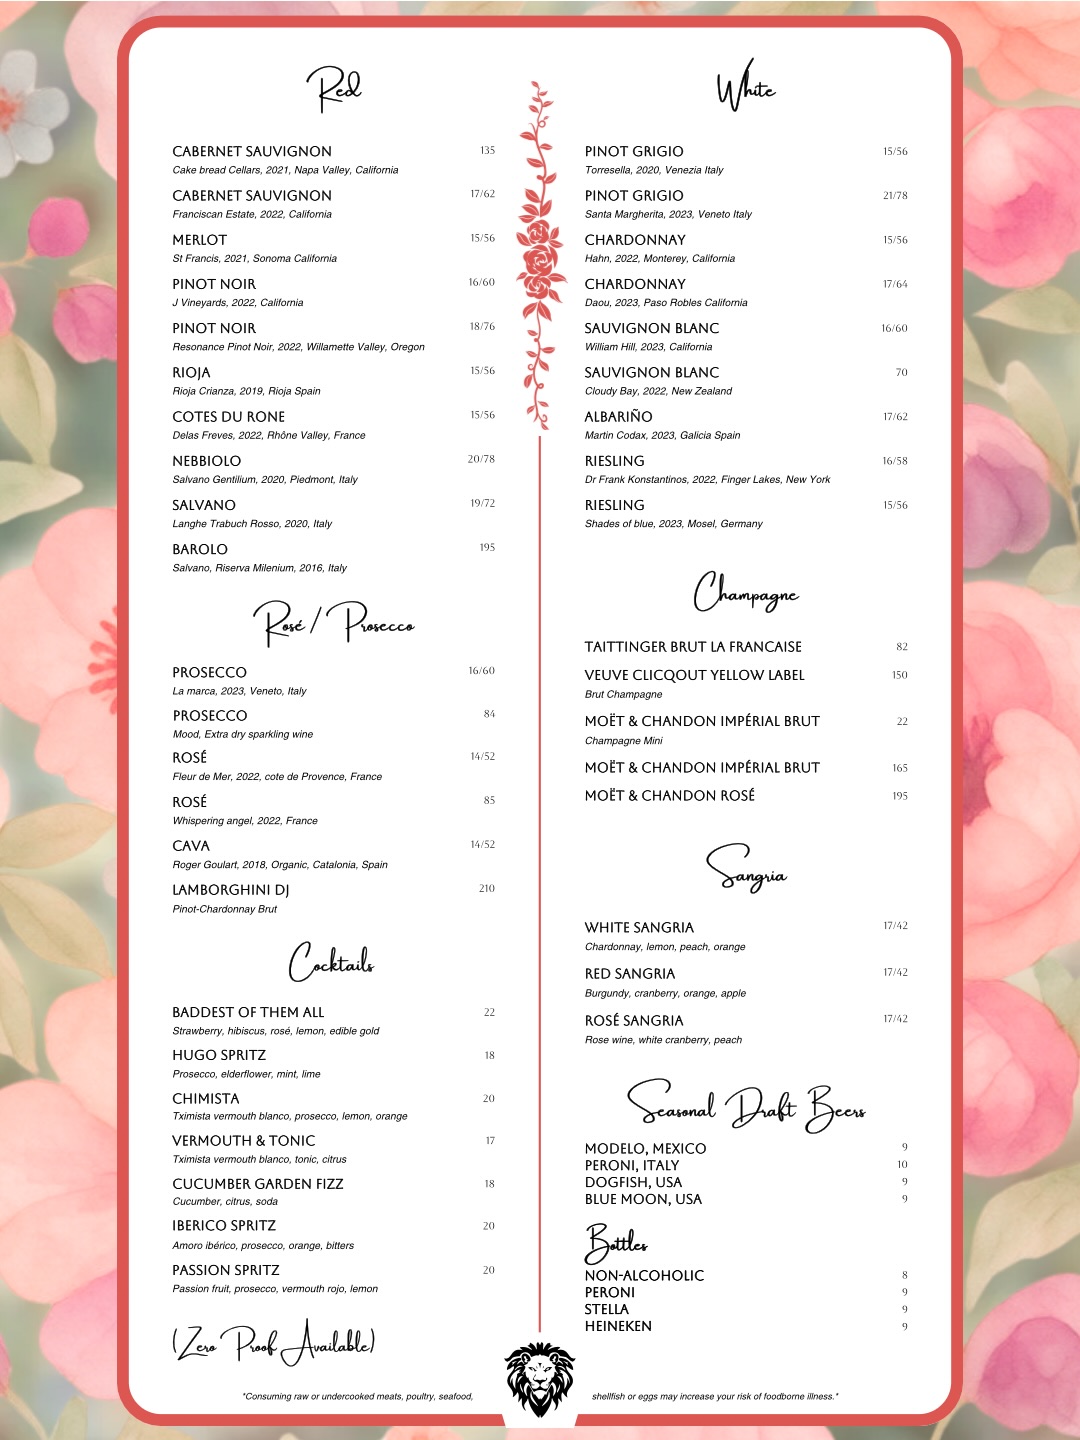 Red
CABERNET SAUVIGNON 135
Cake bread Cellars, 2021, Napa Valley, California
CABERNET SAUVIGNON 17/62
Franciscan Estate, 2022, California
MERLOT 15/56
St Francis, 2021, Sonoma California
PINOT NOIR 16/60
J Vineyards, 2022, California
PINOT NOIR 18/76
Resonance Pinot Noir, 2022, Willamette Valley, Oregon
RIOJA 15/56
Rioja Crianza, 2019, Rioja Spain
COTES DU RONE 15/56
Delas Freves, 2022, Rhône Valley, France
NEBBIOLO 20/78
Salvano Gentilium, 2020, Piedmont, Italy
SALVANO 19/72
Langhe Trabuch Rosso, 2020, Italy
BAROLO 195
Salvano, Riserva Milenium, 2016, Italy
Rosé / Prosecco
PROSECCO 16/60
La marca, 2023, Veneto, Italy
PROSECCO 84
Mood, Extra dry sparkling wine
ROSÉ 14/52
Fleur de Mer, 2022, cote de Provence, France
ROSÉ 85
Whispering angel, 2022, France
CAVA 14/52
Roger Goulart, 2018, Organic, Catalonia, Spain
LAMBORGHINI DJ 210
Pinot-Chardonnay Brut
Cocktails
BADDEST OF THEM ALL 22
Strawberry, hibiscus, rosé, lemon, edible gold
HUGO SPRITZ 18
Prosecco, elderflower, mint, lime
CHIMISTA 20
Tximista vermouth blanco, prosecco, lemon, orange
VERMOUTH & TONIC 17
Tximista vermouth blanco, tonic, citrus
CUCUMBER GARDEN FIZZ 18
Cucumber, citrus, soda
IBERICO SPRITZ 20
Amoro ibérico, prosecco, orange, bitters
PASSION SPRITZ 20
Passion fruit, prosecco, vermouth rojo, lemon
(Zero Proof Available)
White
PINOT GRIGIO 15/56
Torresella, 2020, Venezia Italy
PINOT GRIGIO 21/78
Santa Margherita, 2023, Veneto Italy
CHARDONNAY 15/56
Hahn, 2022, Monterey, California
CHARDONNAY 17/64
Daou, 2023, Paso Robles California
SAUVIGNON BLANC 16/60
William Hill, 2023, California
SAUVIGNON BLANC 70
Cloudy Bay, 2022, New Zealand
ALBARIÑO 17/62
Martin Codax, 2023, Galicia Spain
RIESLING 16/58
Dr Frank Konstantinos, 2022, Finger Lakes, New York
RIESLING 15/56
Shades of blue, 2023, Mosel, Germany
Champagne
TAITTINGER BRUT LA FRANCAISE 82
VEUVE CLICQOUT YELLOW LABEL 150
Brut Champagne
MOËT & CHANDON IMPÉRIAL BRUT 22
Champagne Mini
MOËT & CHANDON IMPÉRIAL BRUT 165
MOËT & CHANDON ROSÉ 195
Sangria
WHITE SANGRIA 17/42
Chardonnay, lemon, peach, orange
RED SANGRIA 17/42
Burgundy, cranberry, orange, apple
ROSÉ SANGRIA 17/42
Rose wine, white cranberry, peach
Seasonal Draft Beers
MODELO, MEXICO 9
PERONI, ITALY 10
DOGFISH, USA 9
BLUE MOON, USA 9
Bottles
NON-ALCOHOLIC 8
PERONI 9
STELLA 9
HEINEKEN 9
*Consuming raw or undercooked meats, poultry, seafood, shellfish or eggs may increase your risk of foodborne illness.*